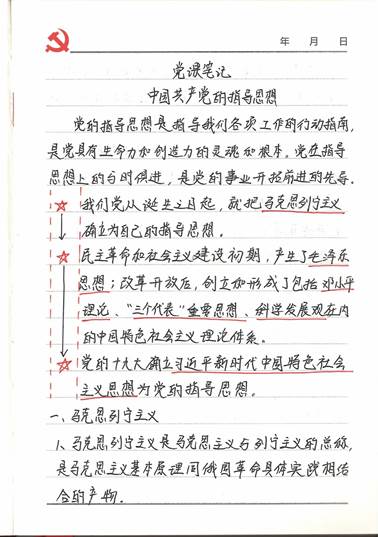 年 月 日
党课笔记
中国共产党的指导思想
党的指导思想是指导我们各项工作的行动指南,
是党具有生命力和创造力的灵魂和根本。党在指导
思想上的与时俱进,是党的事业开拓前进的先导。
我们党从诞生之日起,就把马克思列宁主义
确立为自己的指导思想。
民主革命和社会主义建设初期,产生了毛泽东
思想;改革开放后,创立和形成了包括邓小平
理论、“三个代表”重要思想、科学发展观在内
的中国特色社会主义理论体系。
党的十九大确立习近平新时代中国特色社会
主义思想为党的指导思想。
一、马克思列宁主义
1、马克思列宁主义是马克思主义与列宁主义的总称,
是马克思主义基本原理同俄国革命具体实践相结
合的产物。